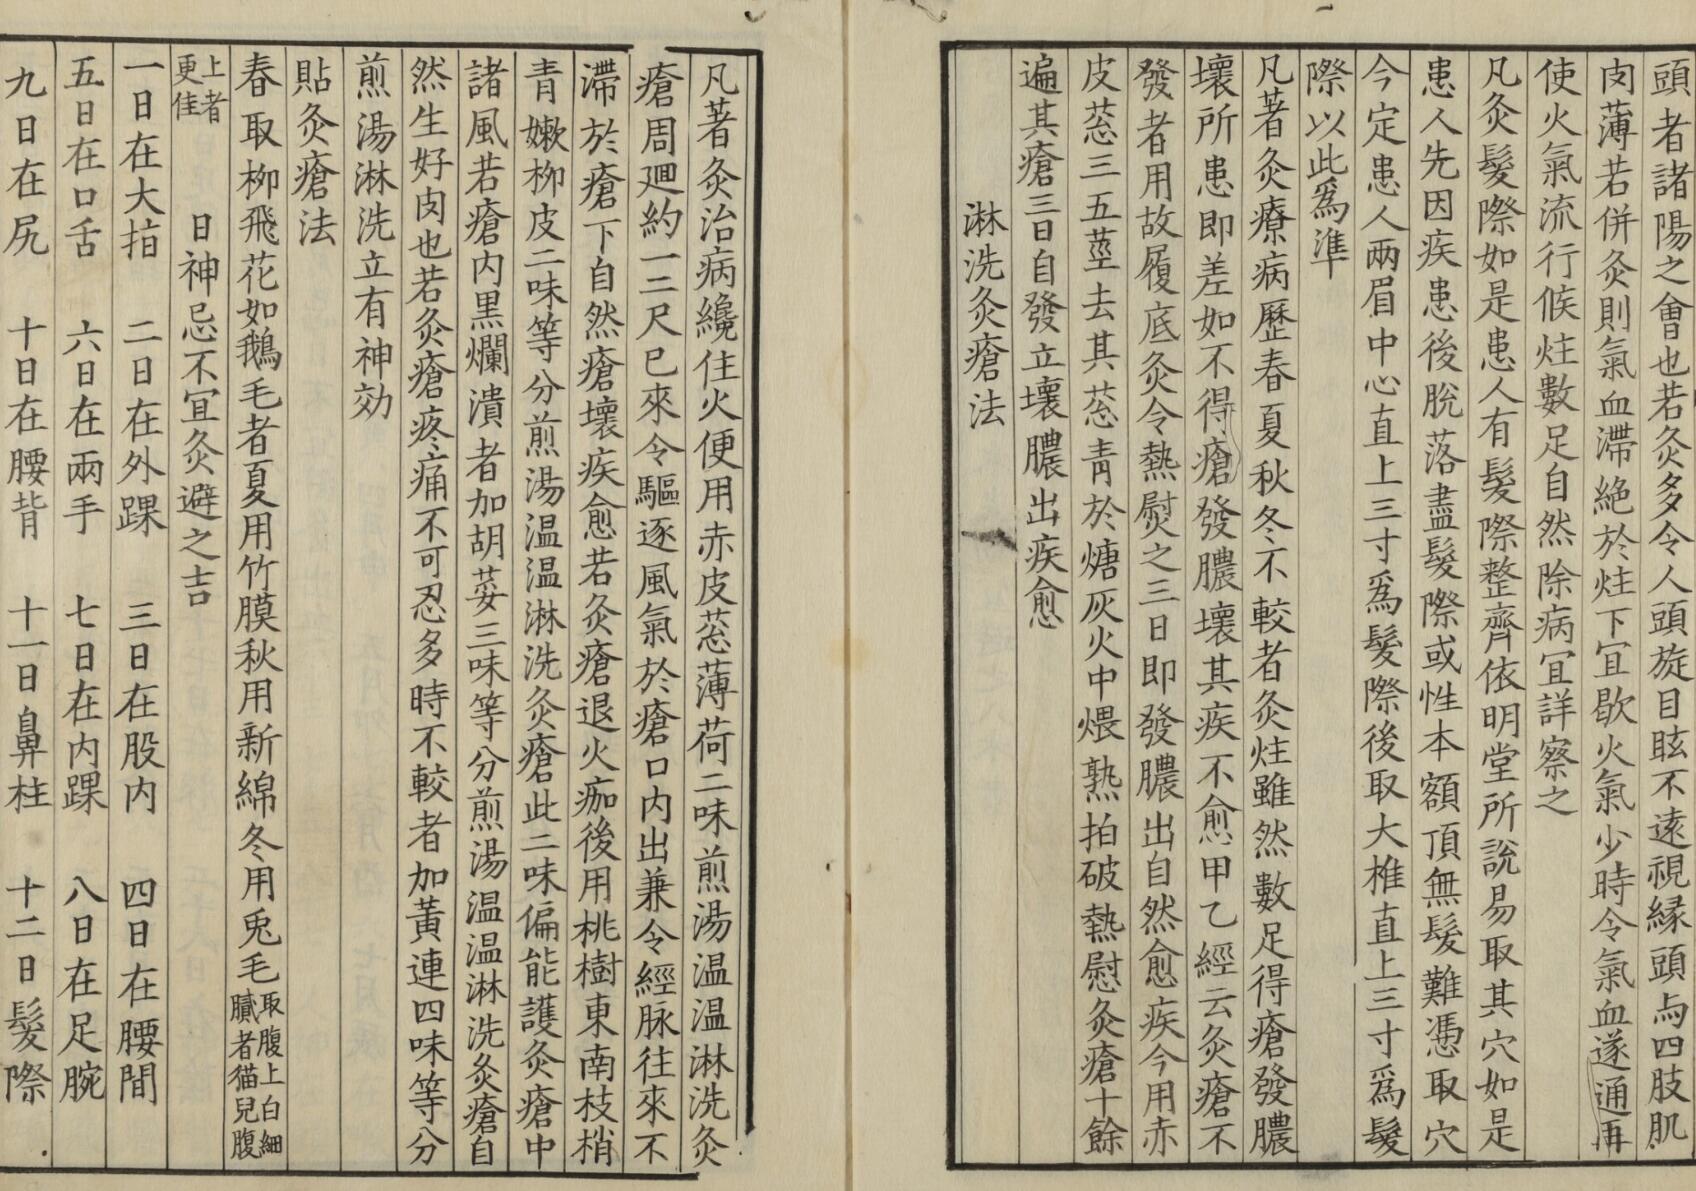 頭者諸陽之會也若灸多令人頭旋目眩不遠視緣頭与四肢肌
肉薄若併灸則氣血滯絶於炷下冝歇火氣少時令氣血遂通再
使火氣流行候炷數足自然除病冝詳察之
凡灸髮際如是患人有髮際整齊依明堂所說易取其穴如是
患人先因疾患後脫落盡髮際或性本額頂無髮難憑取穴
今定患人兩眉中心直上三寸爲髮際後取大椎直上三寸爲髮
際以此爲準
凡著灸療病歷春夏秋冬不較者灸炷雖然數足得瘡發膿
壞所患即差如不得瘡發膿壞其疾不愈甲乙經云灸瘡不
發者用故履底灸令熱熨之三日即發膿出自然愈疾今用赤
皮葱三五莖去其葱青於煻灰火中煨熟拍破熱慰灸瘡十餘
遍其瘡三日自發立壞膿出疾愈
淋洗灸瘡法
凡著灸治病纔住火便用赤皮葱薄荷二味煎湯温温淋洗灸
瘡周廻約一二尺已來令驅逐風氣於瘡口内出兼令經脉往來不
滯於瘡下自然瘡壞疾愈若灸瘡退火痂後用桃樹東南枝梢
青嫰柳皮二味等分煎湯温温淋洗灸瘡此二味偏能護灸瘡中
諸風若瘡内黒爛潰者加胡荽三味等分煎湯温温淋洗灸瘡自
然生好肉也若灸瘡疼痛不可忍多時不較者加黄連四味等分
煎湯淋洗立有神効
貼灸瘡法
春取柳飛花如鵝毛者夏用竹膜秋用新綿冬用兎毛取腹上白細膩者猫兒腹
上者更佳
日神忌不冝灸避之吉
一日在大指 二日在外踝 三日在股内 四日在腰間
五日在口舌 六日在兩手 七日在内踝 八日在足腕
九日在尻 十日在腰背 十一日鼻柱 十二日髮際